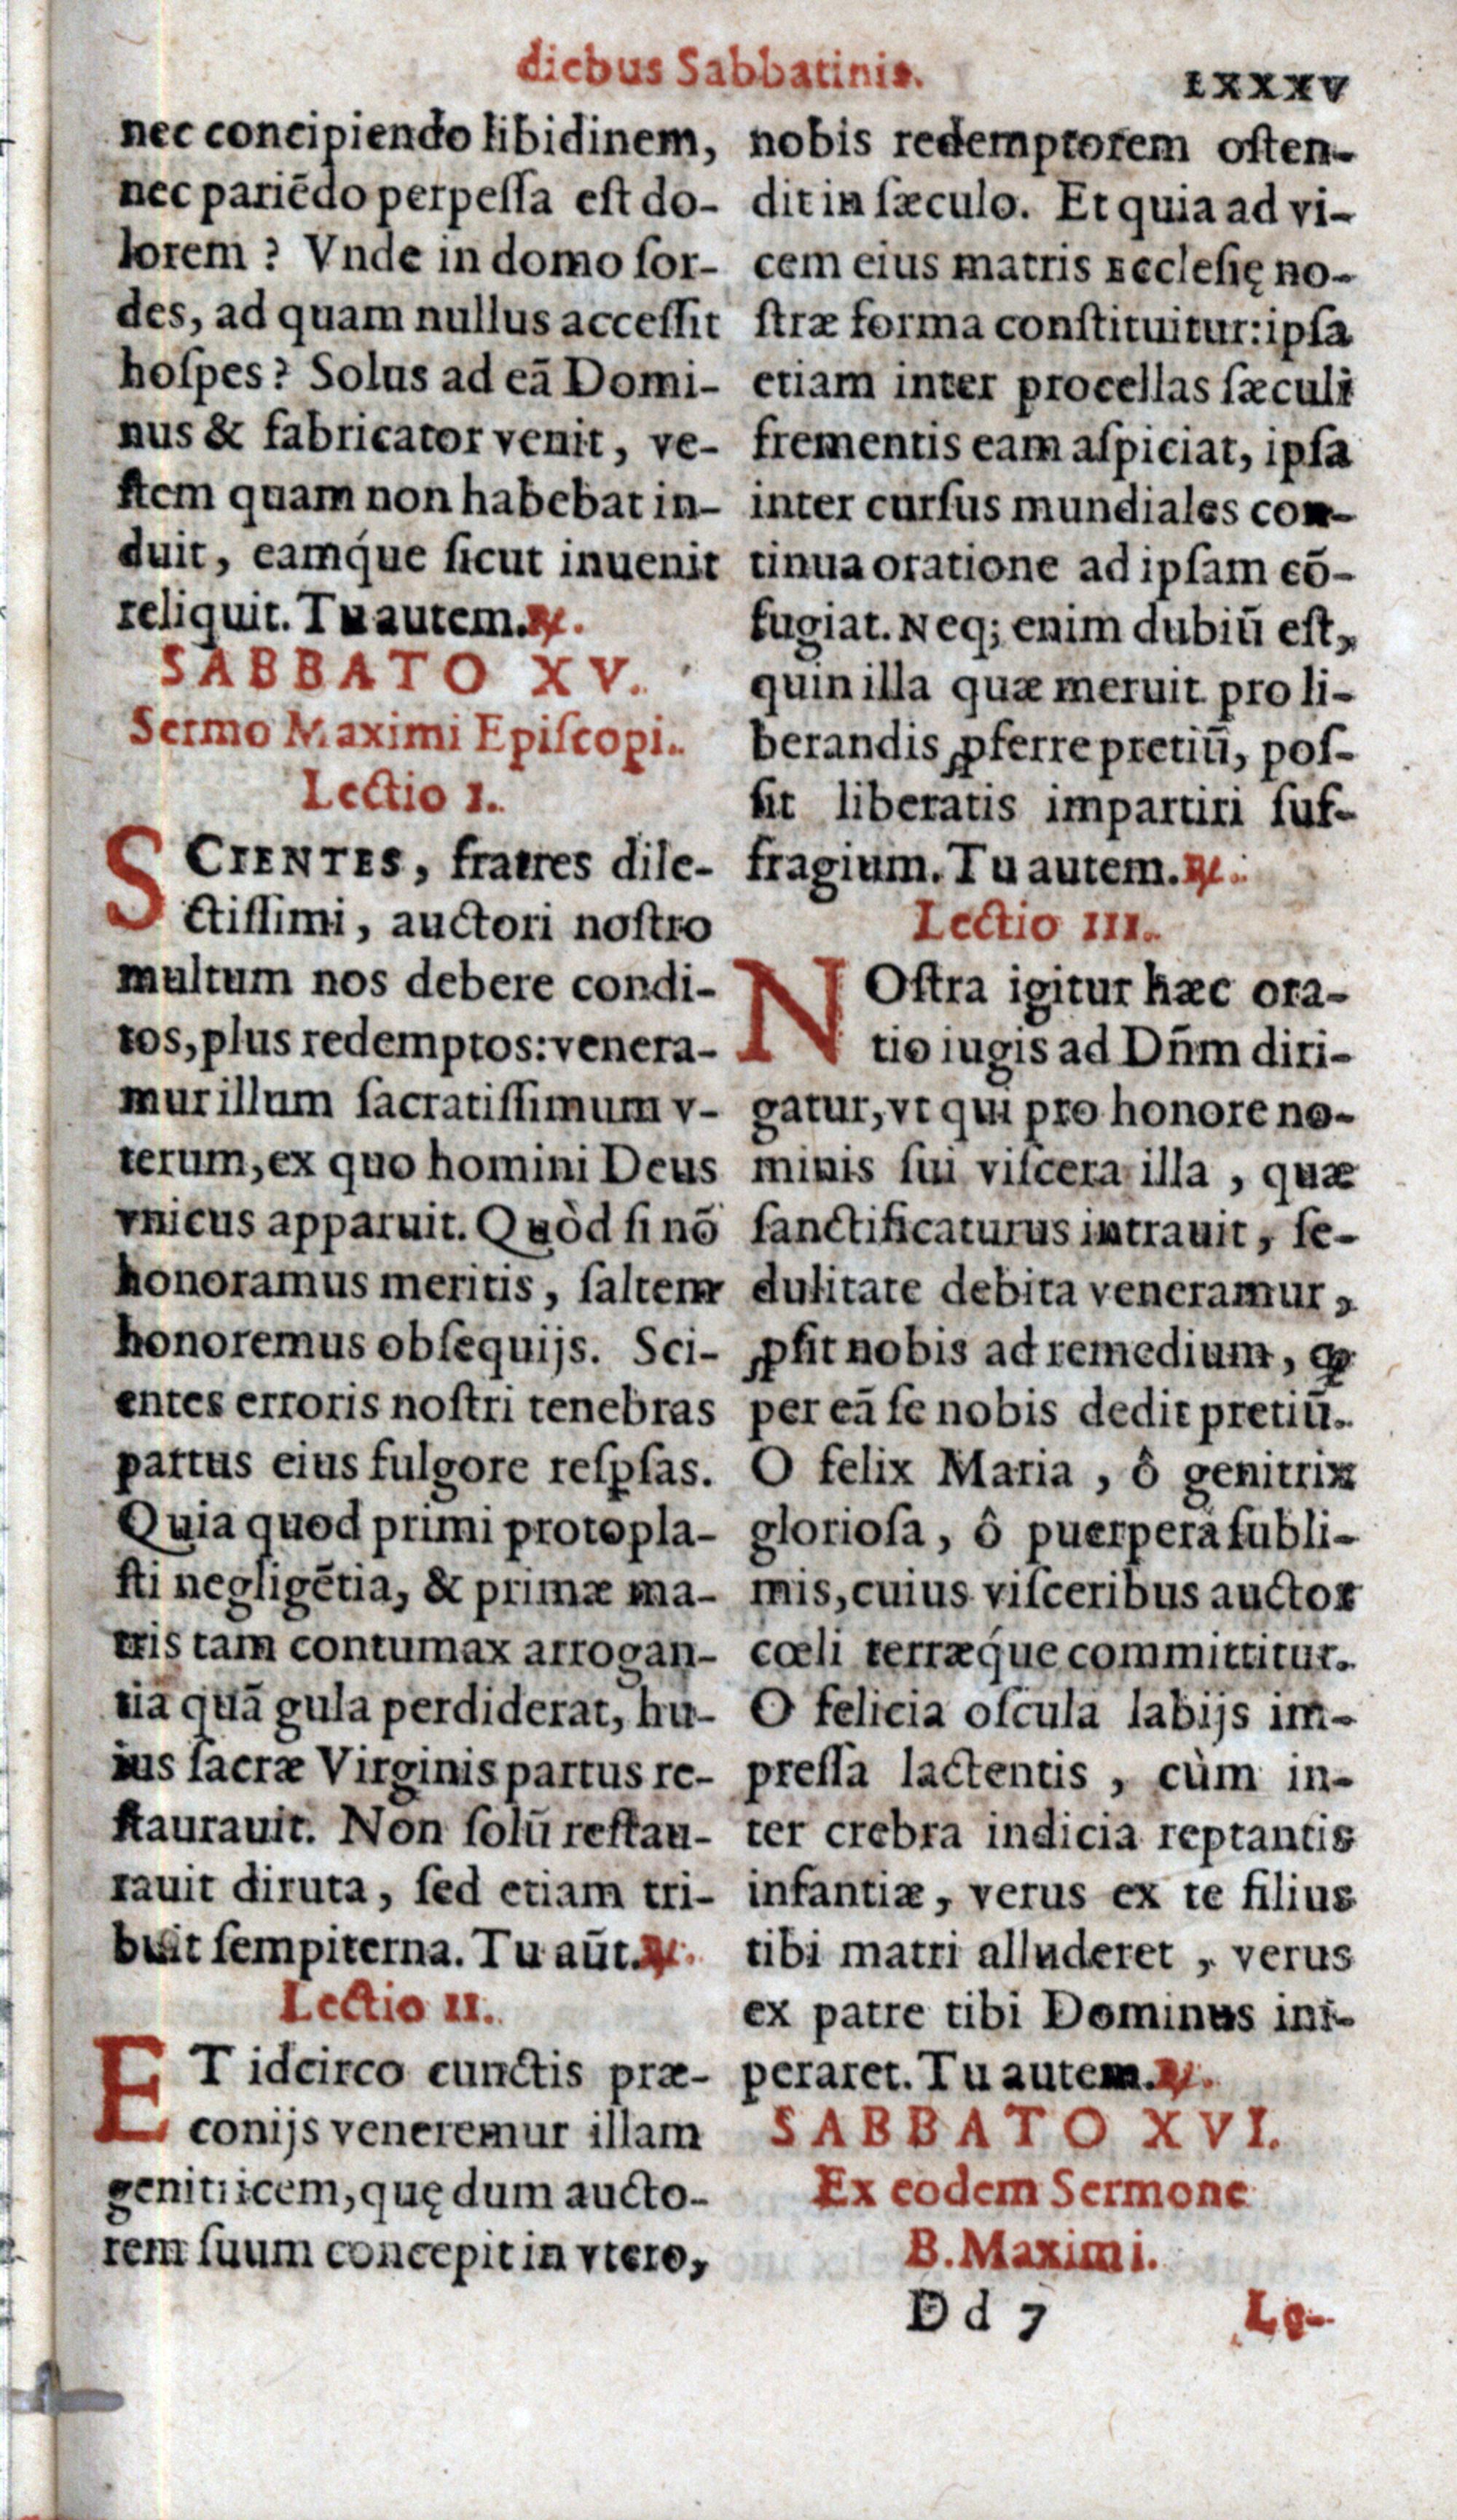 diebus Sabbatinis.
LXXXV
nec concipiendo libidinem,
nec pariēdo perpeſſa eſt do-
lorem ? Vnde in domo ſor-
des, ad quam nullus acceſſit
hoſpes ? Solus ad eā Domi-
nus & fabricator venit, ve-
ſtem quam non habebat in-
duit, eamq́ue ſicut inuenit
reliquit. Tu autem.℟.
SABBATO XV.
Sermo Maximi Epiſcopi.
Lectio I.
SCIENTES, fratres dile-
ctiſſimi, auctori noſtro
multum nos debere condi-
tos, plus redemptos: venera-
mur illum ſacratiſſimum v-
terum, ex quo homini Deus
vnicus apparuit. Quòd ſi nō
honoramus meritis, ſaltem
honoremus obſequijs. Sci-
entes erroris noſtri tenebras
partus eius fulgore reſꝑſas.
Quia quod primi protopla-
ſti negligētia, & primæ ma-
tris tam contumax arrogan-
tia quā gula perdiderat, hu-
ius ſacræ Virginis partus re-
ſtaurauit. Non ſolū reſtau-
rauit diruta, ſed etiam tri-
buit ſempiterna. Tu aūt.℟.
Lectio II.
ET idcirco cunctis præ-
conijs veneremur illam
genitricem, quę dum aucto-
rem ſuum concepit in vtero,
nobis redemptorem oſten-
dit in ſæculo. Et quia ad vi-
cem eius matris Eccleſię no-
ſtræ forma conſtituitur: ipſa
etiam inter procellas ſæculi
frementis eam aſpiciat, ipſa
inter curſus mundiales con-
tinua oratione ad ipſam cō-
fugiat. Neq; enim dubiū eſt,
quin illa quæ meruit pro li-
berandis ꝓferre pretiū, poſ-
ſit liberatis impartiri ſuf-
fragium. Tu autem.℟.
Lectio III.
NOſtra igitur hæc ora-
tio iugis ad Dñm diri-
gatur, vt qui pro honore no-
minis ſui viſcera illa, quæ
ſanctificaturus intrauit, ſe-
dulitate debita veneramur,
ꝓſit nobis ad remedium, ꝙ
per eā ſe nobis dedit pretiū.
O felix Maria, ô genitrix
glorioſa, ô puerpera ſubli-
mis, cuius viſceribus auctor
cœli terræq́ue committitur.
O felicia oſcula labijs im-
preſſa lactentis, cùm in-
ter crebra indicia reptantis
infantiæ, verus ex te filius
tibi matri alluderet, verus
ex patre tibi Dominus im-
peraret. Tu autem.℟.
SABBATO XVI.
Ex eodem Sermone
B. Maximi.
Dd 7
Le-